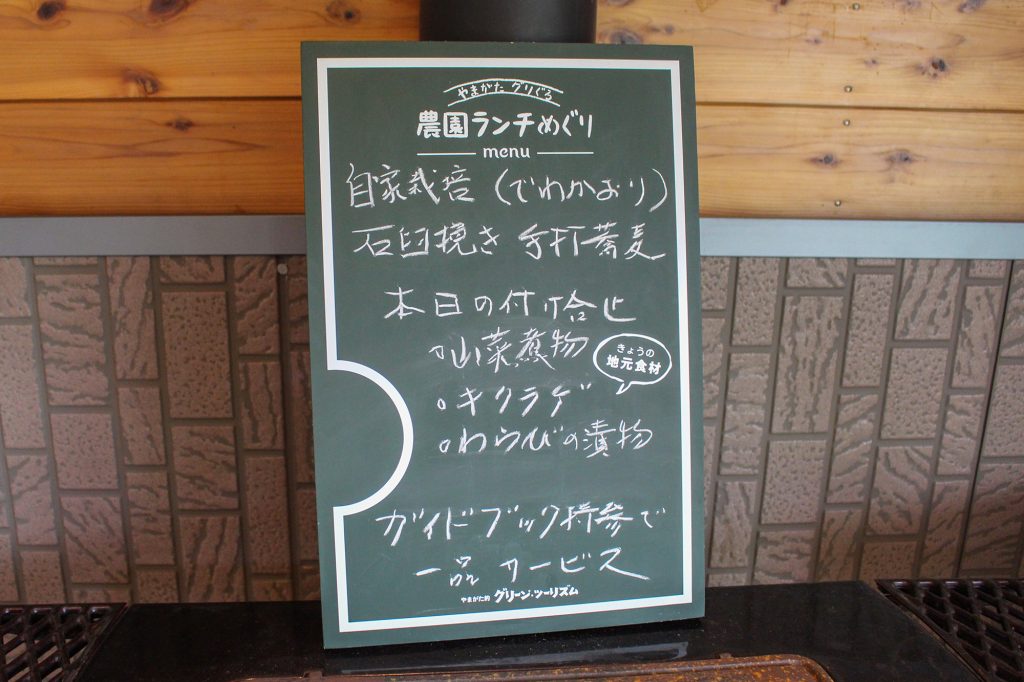 やまがた グリぐる
農園ランチめぐり
menu
自家栽培（でわかおり）
石臼挽き 手打蕎麦
本日の付け合せ
○山菜煮物
きょうの
地元食材
○キクラゲ
○わらびの漬物
ガイドブック持参で
一品 サービス
やまがた的 グリーン・ツーリズム